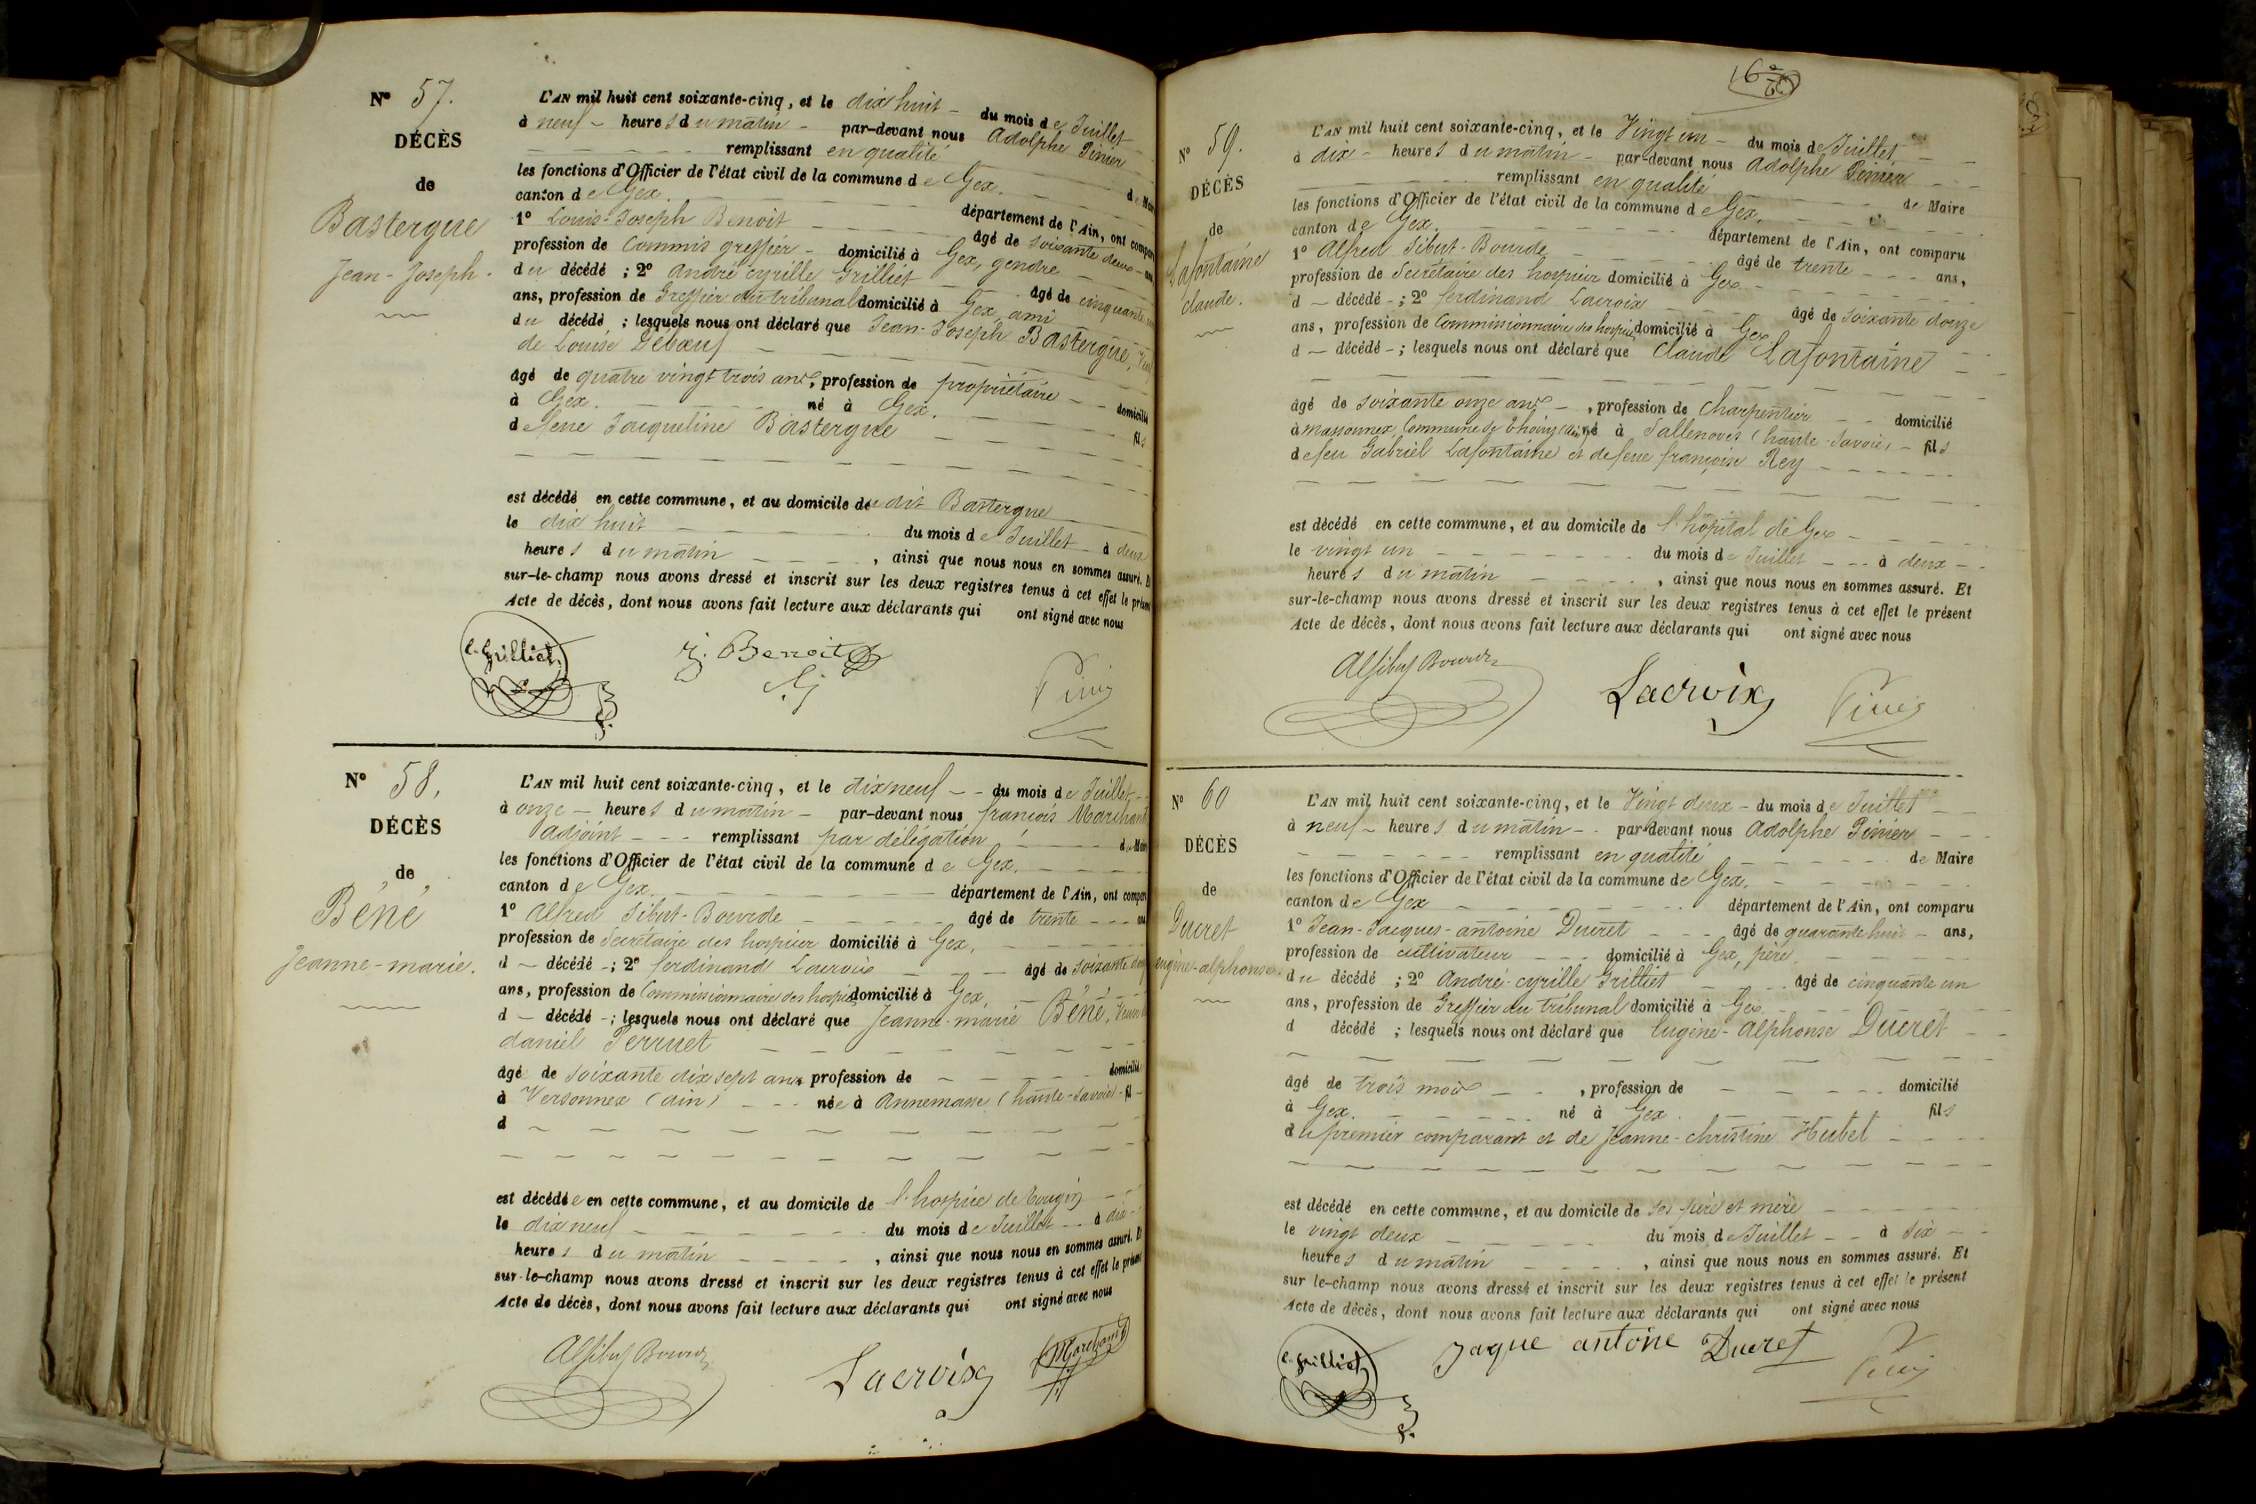 Nº 57.
DÉCÈS
de
Bastergue
Jean-Joseph.
L'AN mil huit cent soixante-cinq, et le dix huit - du mois de Juillet
à neuf - heures du matin - par-devant nous Adolphe Pinier
remplissant en qualité de Maire
les fonctions d'Officier de l'état civil de la commune de Gex.
canton de Gex. département de l'Ain, ont comparu
1º Louis-Joseph Benoit âgé de soixante deux ans
profession de Commis greffier - domicilié à Gex, gendre
du décédé ; 2º André cyrille Grilliet âgé de cinquante un
ans, profession de Greffier du tribunal domicilié à Gex, ami
du décédé ; lesquels nous ont déclaré que Jean-Joseph Bastergue, Veuf
de Louise Deboeuf
âgé de quatre vingt trois ans, profession de propriétaire domicilié
à Gex. né à Gex. fils
de feue Jacqueline Bastergue
est décédé en cette commune, et au domicile du dit Bastergue
le dix huit du mois de Juillet à deux
heures du matin , ainsi que nous nous en sommes assuré. Et
sur-le-champ nous avons dressé et inscrit sur les deux registres tenus à cet effet le présent
Acte de décès, dont nous avons fait lecture aux déclarants qui ont signé avec nous
C. Grilliet J. Benoit Pinier
Nº 58.
DÉCÈS
de
Béné
Jeanne-marie.
L'AN mil huit cent soixante-cinq, et le dix neuf - - du mois de Juillet
à onze - heures du matin - par-devant nous françois Marchand
adjoint - - - remplissant par délégation du Maire
les fonctions d'Officier de l'état civil de la commune de Gex.
canton de Gex. département de l'Ain, ont comparu
1º Alfred Sibut-Bourde âgé de trente - - - ans
profession de Secrétaire des hospices domicilié à Gex,
d - décédé - ; 2º ferdinand Lacroix âgé de soixante douze
ans, profession de Commissionnaire des hospices domicilié à Gex,
d - décédé - ; lesquels nous ont déclaré que Jeanne-marie Béné, Veuve de
daniel Perruet
âgé de soixante dix sept ans profession de domicilié
à Versonnex (ain) - - - née à Annemasse (haute-Savoie) - fil
d
est décédée en cette commune, et au domicile de l'hospice de Tougin
le dix neuf du mois de Juillet - - à dix
heures du matin , ainsi que nous nous en sommes assuré. Et
sur-le-champ nous avons dressé et inscrit sur les deux registres tenus à cet effet le présent
Acte de décès, dont nous avons fait lecture aux déclarants qui ont signé avec nous
A Sibut Bourde Lacroix Marchand
Nº 59.
DÉCÈS
de
Lafontaine
claude.
L'AN mil huit cent soixante-cinq, et le Vingt un - du mois de Juillet
à dix - heures du matin - par-devant nous Adolphe Pinier
remplissant en qualité de Maire
les fonctions d'Officier de l'état civil de la commune de Gex.
canton de Gex. département de l'Ain, ont comparu
1º Alfred Sibut-Bourde âgé de trente - - - ans,
profession de Secrétaire des hospices domicilié à Gex
d - décédé - ; 2º ferdinand Lacroix âgé de soixante douze
ans, profession de Commissionnaire des hospices domicilié à Gex
d - décédé - ; lesquels nous ont déclaré que Claude Lafontaine
âgé de soixante onze ans - , profession de Charpentier domicilié
à massonnex, Commune de Thoiry (ain) né à Sallenoves (haute-Savoie) - fils
de feu Gabriel Lafontaine et de feue françoise Rey
est décédé en cette commune, et au domicile de l'hôpital de Gex
le vingt un du mois de Juillet - - - à deux - -
heures du matin , ainsi que nous nous en sommes assuré. Et
sur-le-champ nous avons dressé et inscrit sur les deux registres tenus à cet effet le présent
Acte de décès, dont nous avons fait lecture aux déclarants qui ont signé avec nous
A Sibut Bourde Lacroix Pinier
Nº 60
DÉCÈS
de
Ducret
eugène-alphonse.
L'AN mil huit cent soixante-cinq, et le Vingt deux - du mois de Juillet
à neuf - heures du matin - - par-devant nous Adolphe Pinier
remplissant en qualité de Maire
les fonctions d'Officier de l'état civil de la commune de Gex.
canton de Gex département de l'Ain, ont comparu
1º Jean-Jacques-antoine Ducret - - - âgé de quarante huit - ans,
profession de cultivateur - - - domicilié à Gex, père
du décédé ; 2º André-cyrille Grilliet âgé de cinquante un
ans, profession de Greffier du tribunal domicilié à Gex
d décédé ; lesquels nous ont déclaré que Eugène-Alphonse Ducret
âgé de trois mois , profession de domicilié
à Gex. né à Gex. fils
du premier comparant et de Jeanne-christine Hubel
est décédé en cette commune, et au domicile de ses père et mère
le vingt deux du mois de Juillet - - à six
heures du matin , ainsi que nous nous en sommes assuré. Et
sur le-champ nous avons dressé et inscrit sur les deux registres tenus à cet effet le présent
Acte de décès, dont nous avons fait lecture aux déclarants qui ont signé avec nous
C. Grilliet Jaque antoine Ducret Pinier